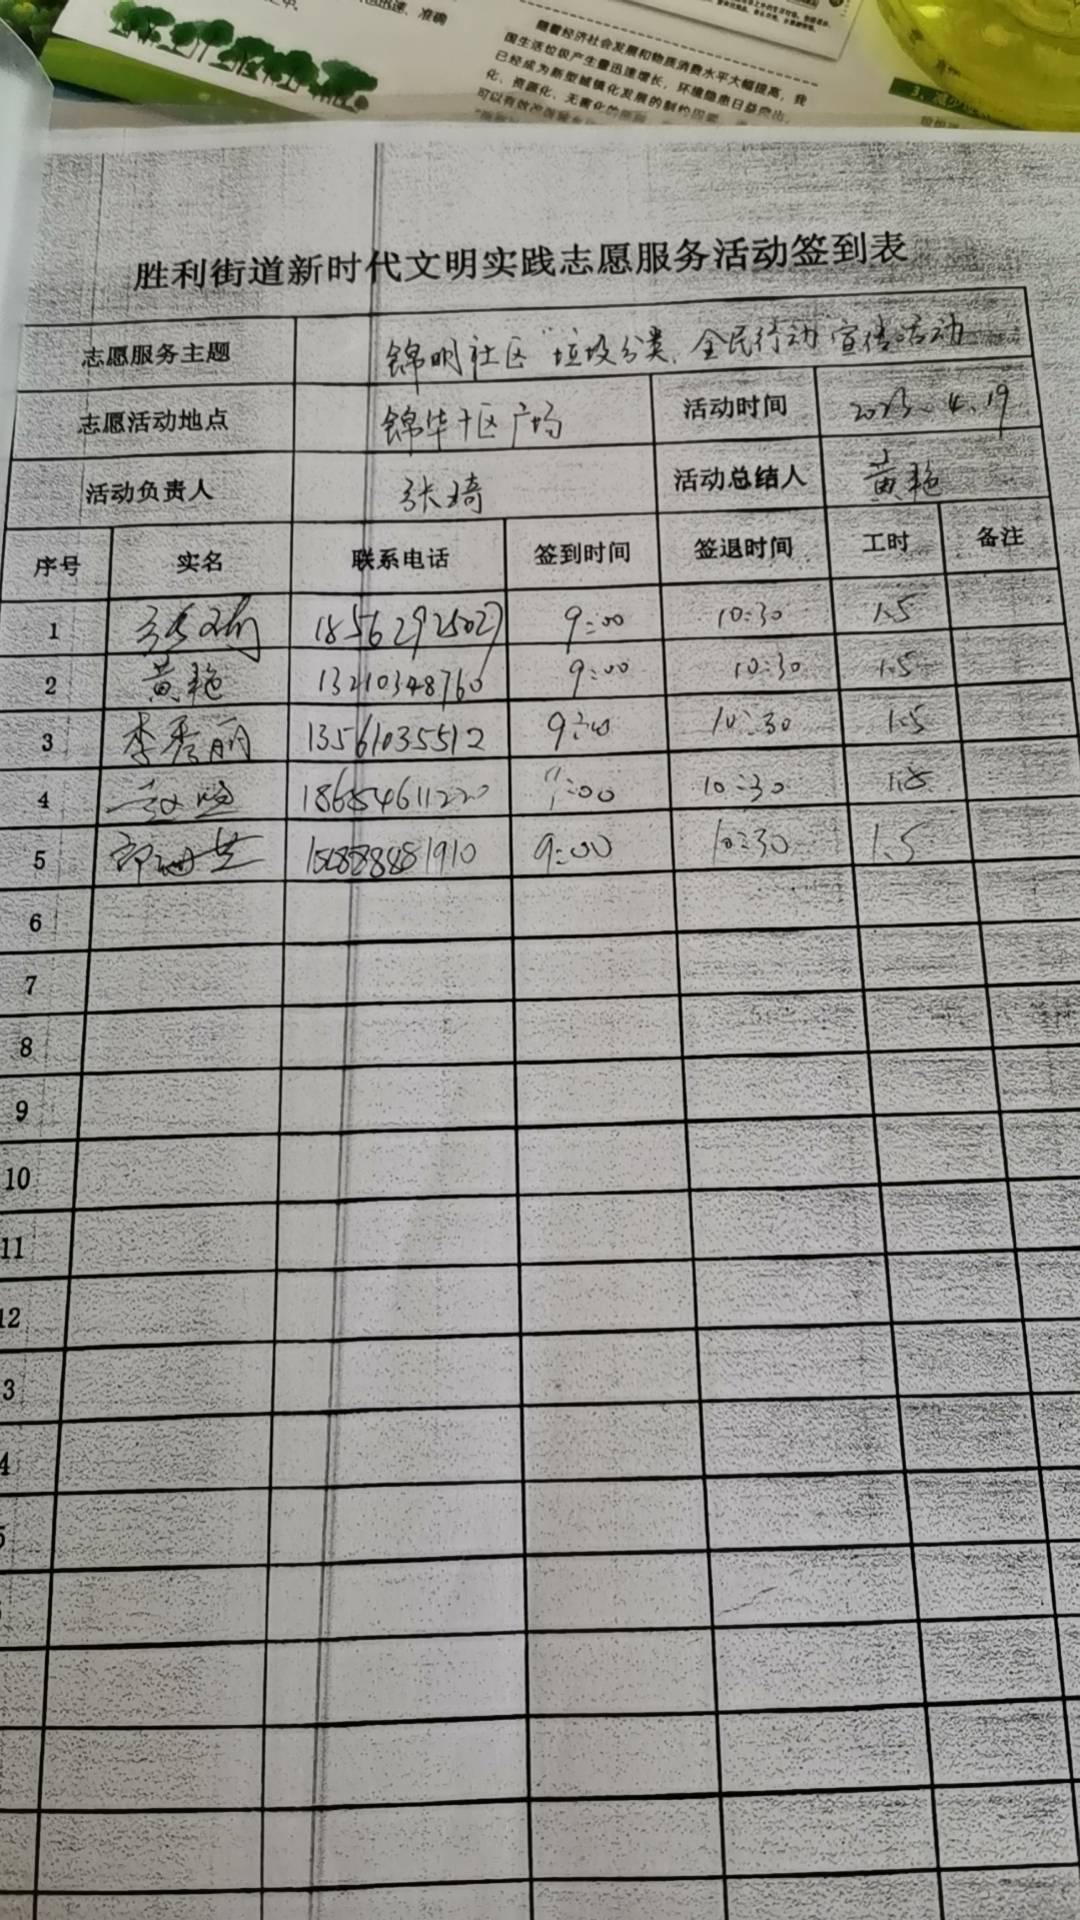 随着经济社会发展和物质消费水平大幅提高，我
国生活垃圾产生量迅速增长，环境隐患日益突出，
已经成为新型城镇化发展的制约因素，
化、资源化、无害化的
可以有效改善
迅速、准确
胜利街道新时代文明实践志愿服务活动签到表
志愿服务主题 锦明社区"垃圾分类、全民行动"宣传活动
志愿活动地点 锦华十区广场 活动时间 2023.4.19
活动负责人 张琦 活动总结人 黄艳
序号 实名 联系电话 签到时间 签退时间 工时 备注
1 18562925027 9:00 10:30 1.5
2 黄艳 13210348760 9:00 10:30 1.5
3 李秀丽 13561035512 9:00 10:30 1.5
4 18654611220 9:00 10:30 1.5
5 9:00 10:30 1.5
6
7
8
9
10
11
12
3
4
5